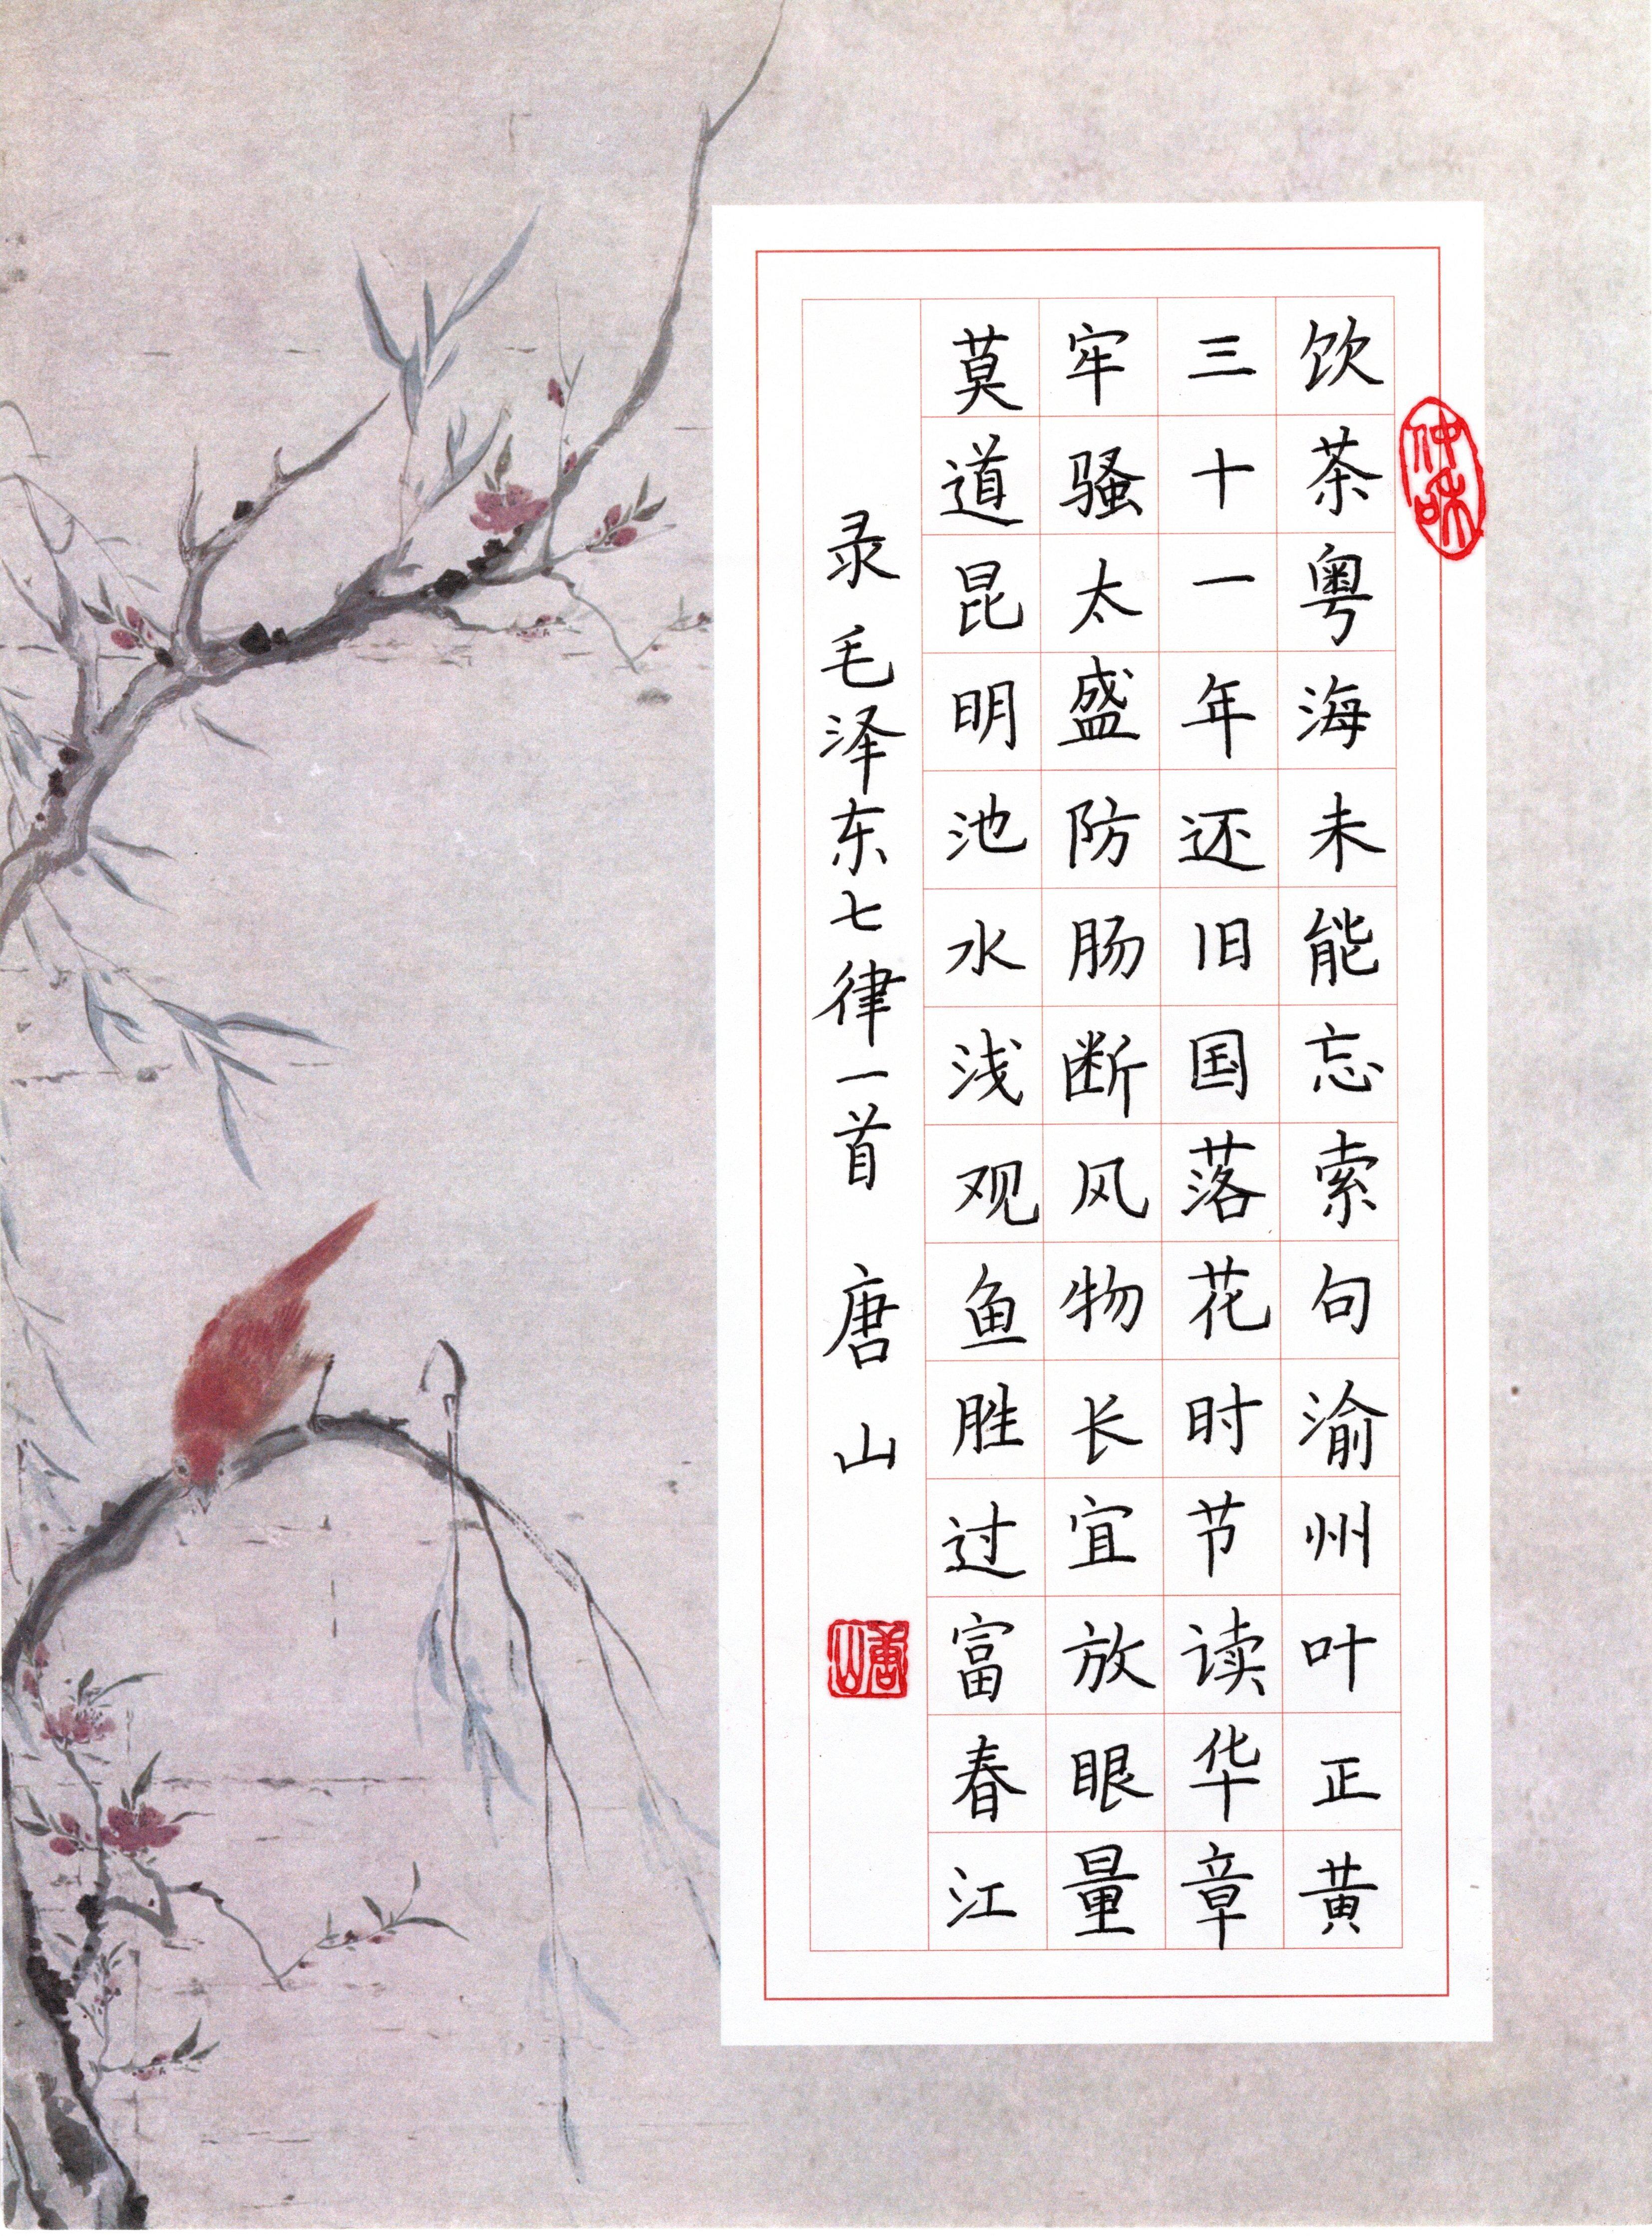 饮茶粤海未能忘索句渝州叶正黄
三十一年还旧国落花时节读华章
牢骚太盛防肠断风物长宜放眼量
莫道昆明池水浅观鱼胜过富春江
录毛泽东七律一首 唐山
唐山